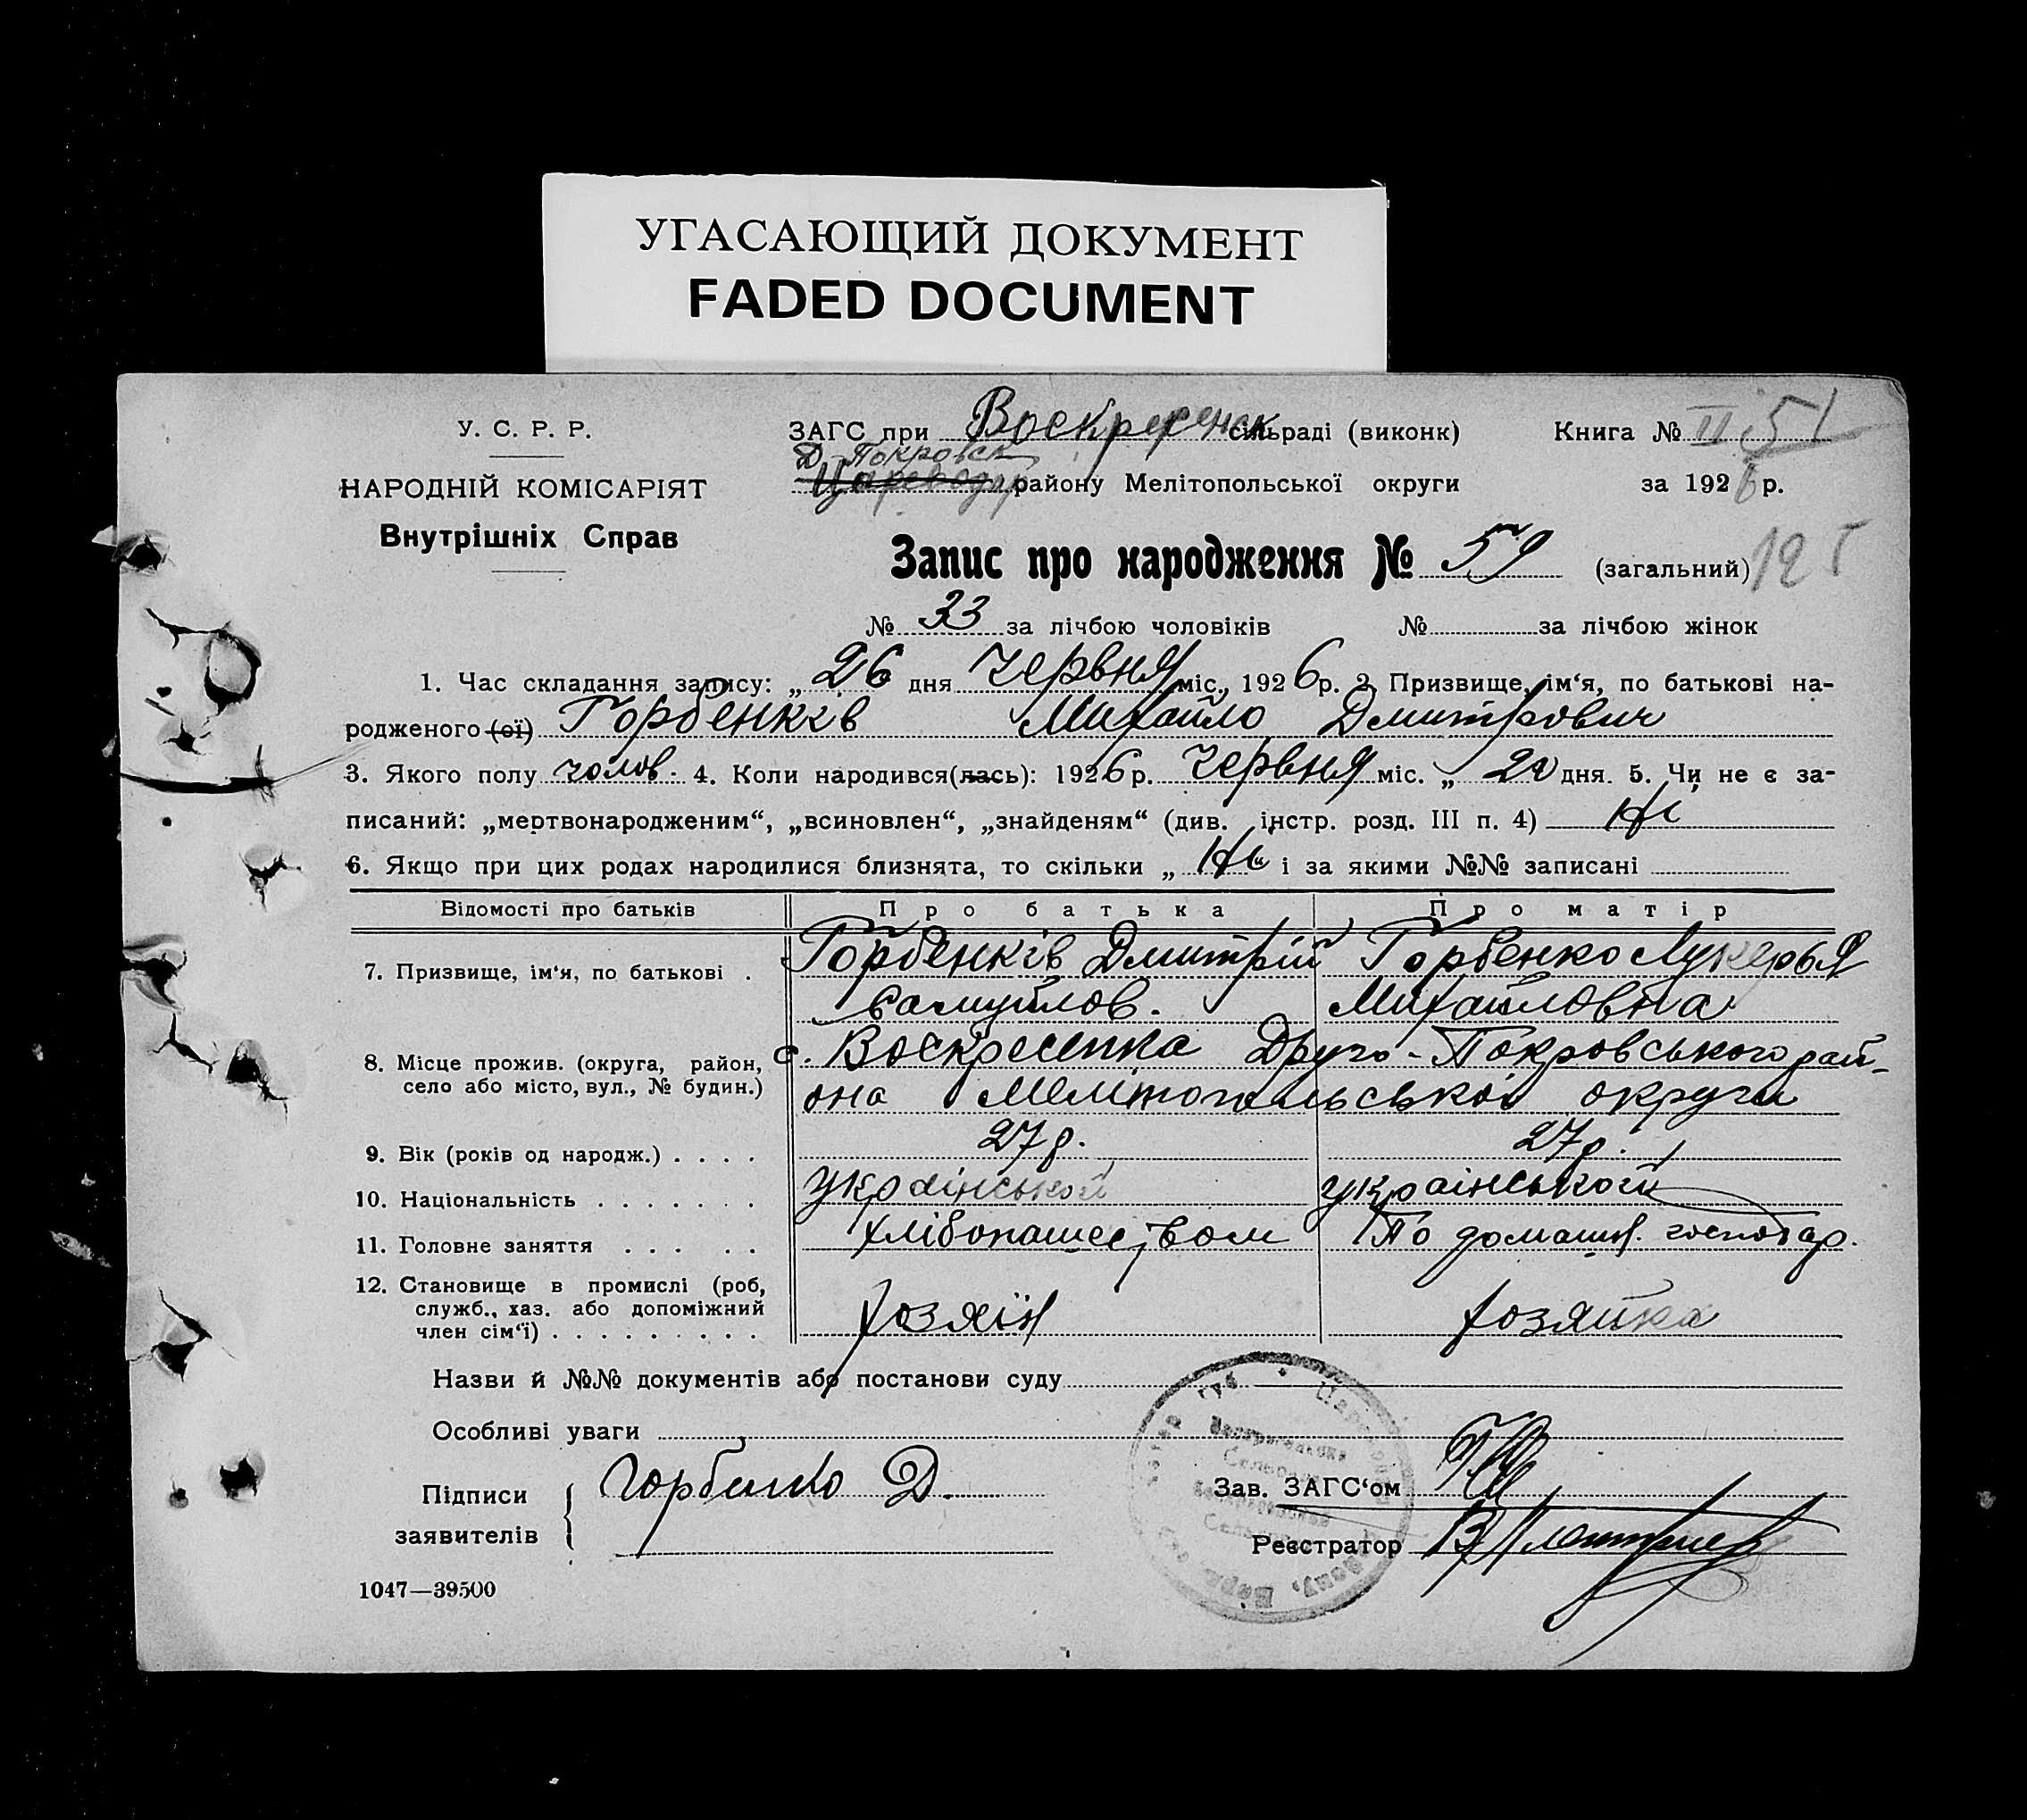 УГАСАЮЩИЙ ДОКУМЕНТ
FADED DOCUMENT
У. С. Р. Р.
НАРОДНІЙ КОМІСАРІЯТ
Внутрішніх Справ
ЗАГС при Воскресенск сільраді (виконк) Книга № II 51
Д-Покровск
Цареводар району Мелітопольської округи за 1926 р.
Запис про народження № 59 (загальний) 125
№ 33 за лічбою чоловіків № за лічбою жінок
1. Час складання запису: „ 26 дня червня міс. 1926 р. 2. Призвище, ім‘я, по батькові на-
родженого (ої) Горбенків Михайло Дмитрович
3. Якого полу чолов. 4. Коли народився(лась): 1926 р. червня міс. „ дня. 5. Чи не є за-
писаний: „мертвонародженим“, „всиновлен“, „знайденям“ (див. інстр. розд. III п. 4) Ні
6. Якщо при цих родах народилися близнята, то скільки „ Ні “ і за якими №№ записані
Відомості про батьків Про батька Про матір
7. Призвище, ім‘я, по батькові . Горбенків Дмитрій Горбенко Лукерья
Самуйлов. Михайловна
8. Місце прожив. (округа, район, село або місто, вул., № будин.) с. Воскресенка Друго-Покровського рай-
она Мелітопольської округи
9. Вік (років од народж.) . . . . 27 р. 27 р.
10. Національність . . . . . . . української української
11. Головне заняття . . . . . хлібопашеством По домашн. господар.
12. Становище в промислі (роб, служб., хаз. або допоміжний член сім‘ї) . . . . . . . . . хозяїн хозяйка
Назви й №№ документів або постанови суду
Особливі уваги
Підписи заявителів Горбенко Д.
Зав. ЗАГС‘ом
Реєстратор
1047—39500